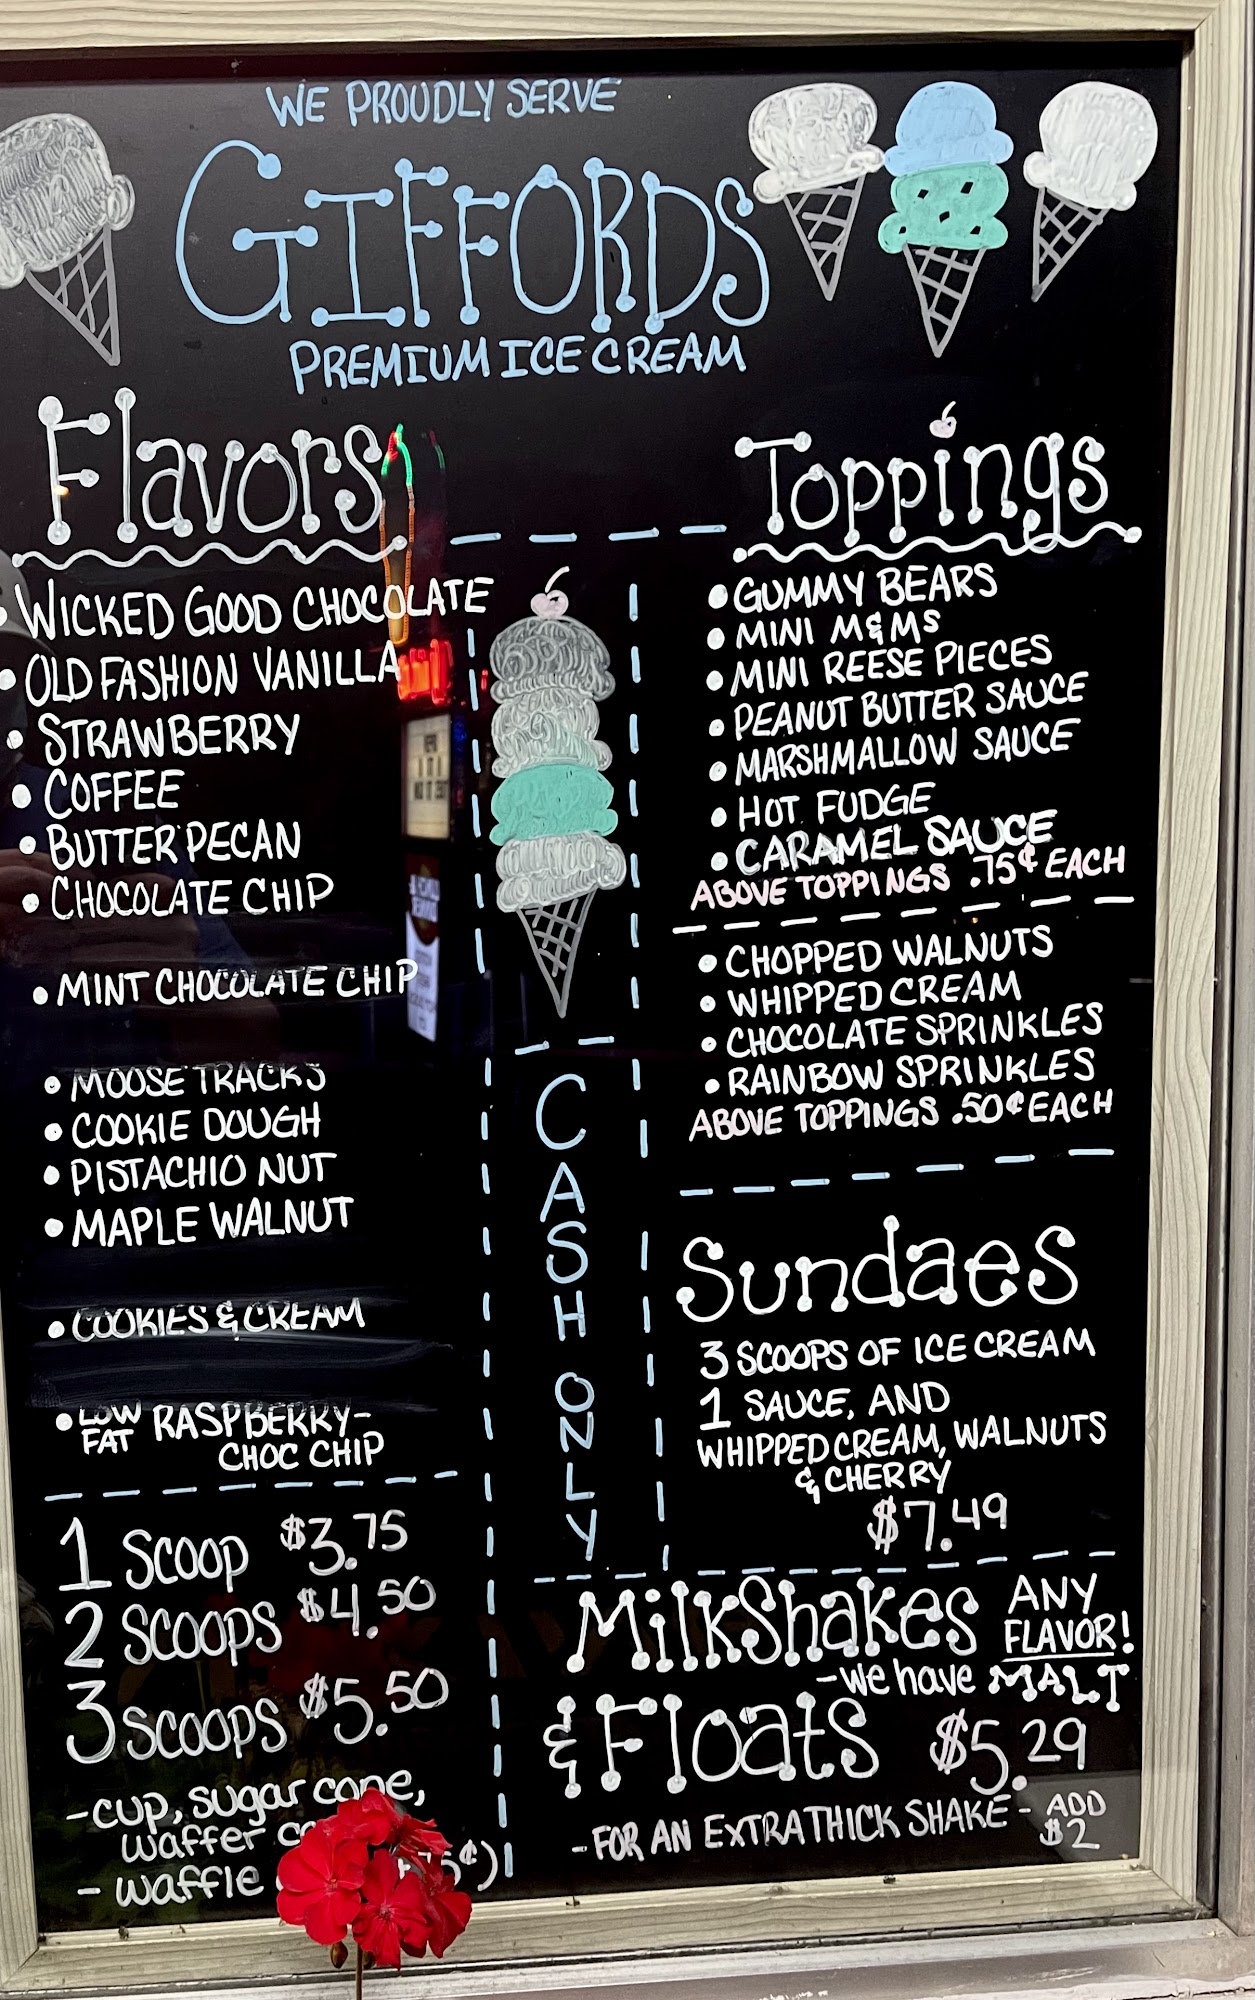 WE PROUDLY SERVE
GIFFORDS
PREMIUM ICE CREAM
Flavors
• WICKED GOOD CHOCOLATE
• OLD FASHION VANILLA
• STRAWBERRY
• COFFEE
• BUTTER PECAN
• CHOCOLATE CHIP
• MINT CHOCOLATE CHIP
• MOOSE TRACKS
• COOKIE DOUGH
• PISTACHIO NUT
• MAPLE WALNUT
• COOKIES & CREAM
• LOW FAT RASPBERRY-
CHOC CHIP
1 SCOOP $3.75
2 SCOOPS $4.50
3 SCOOPS $5.50
-cup, sugar cone,
waffer
- waffle
CASH ONLY
Toppings
• GUMMY BEARS
• MINI M&MS
• MINI REESE PIECES
• PEANUT BUTTER SAUCE
• MARSHMALLOW SAUCE
• HOT FUDGE
• CARAMEL SAUCE
ABOVE TOPPINGS .75¢ EACH
• CHOPPED WALNUTS
• WHIPPED CREAM
• CHOCOLATE SPRINKLES
• RAINBOW SPRINKLES
ABOVE TOPPINGS .50¢ EACH
Sundaes
3 SCOOPS OF ICE CREAM
1 SAUCE, AND
WHIPPED CREAM, WALNUTS
& CHERRY
$7.49
MilkShakes ANY FLAVOR!
-we have MALT
& Floats $5.29
- FOR AN EXTRA THICK SHAKE - ADD $2